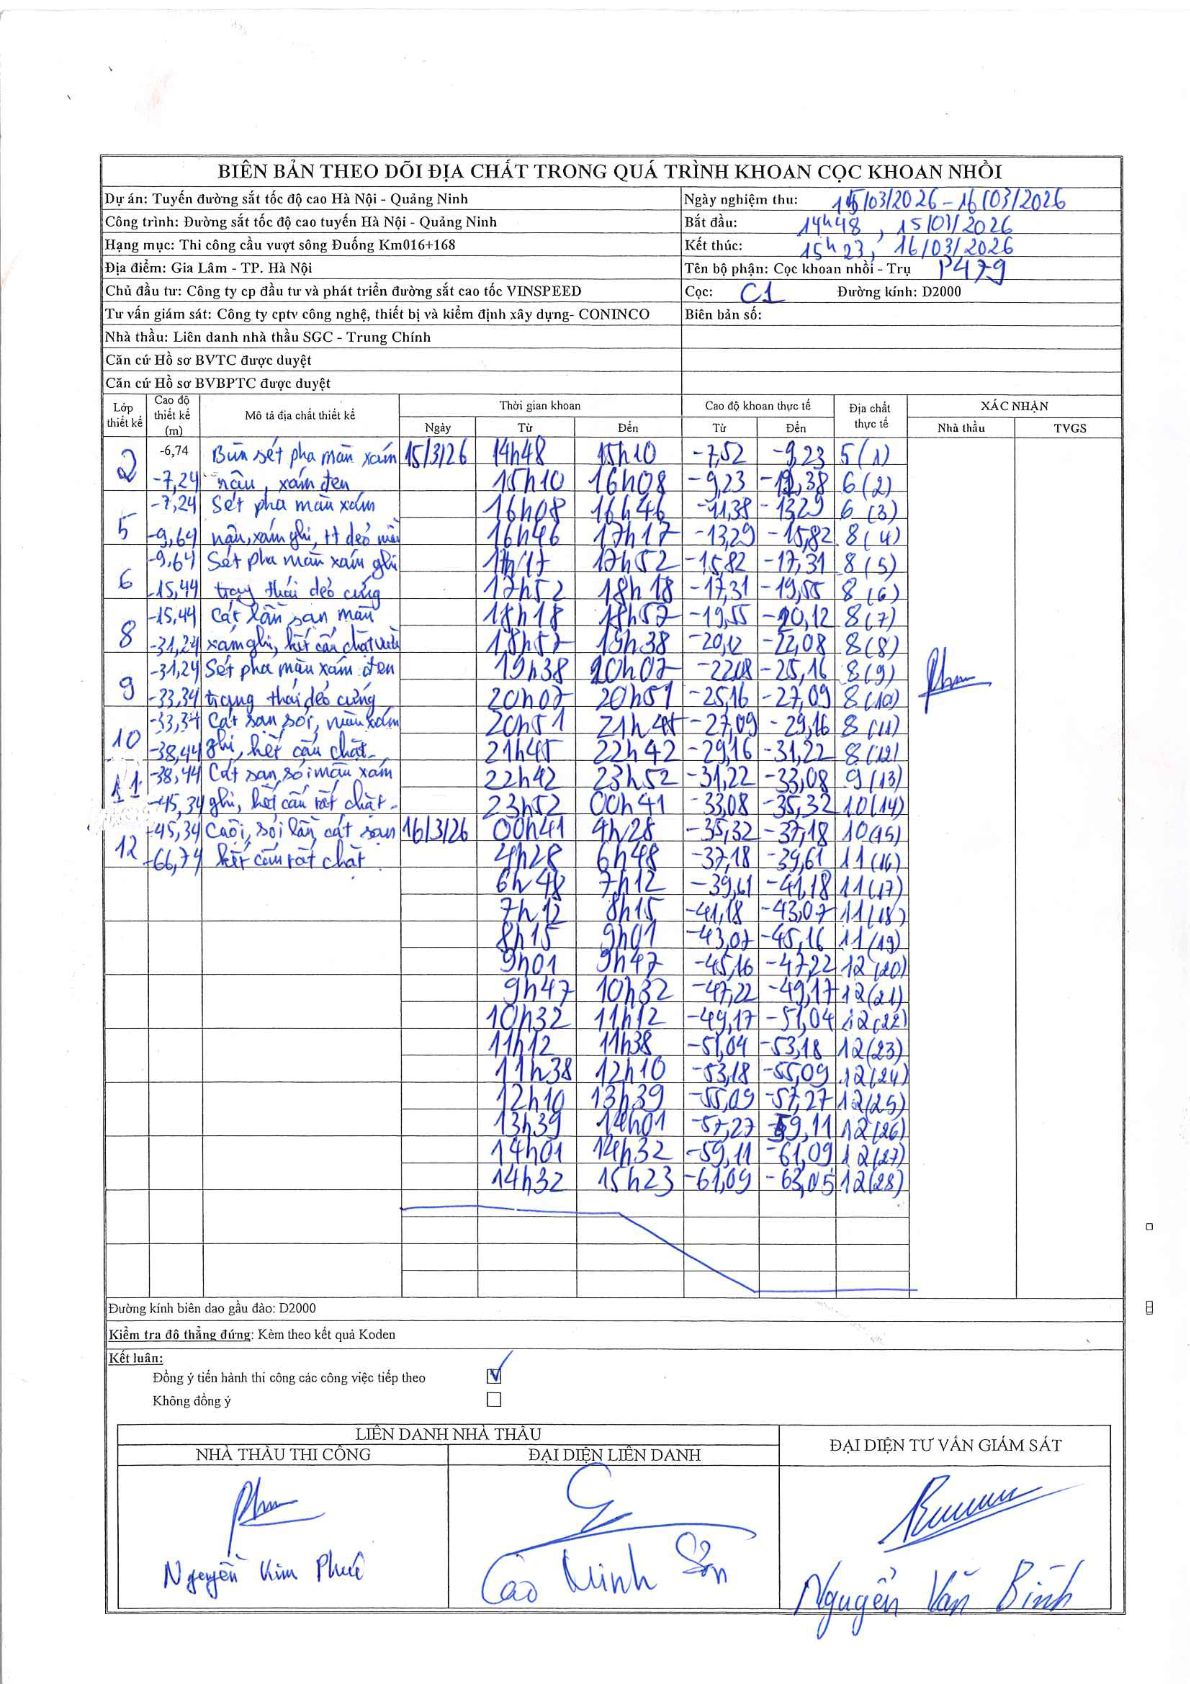 BIÊN BẢN THEO DÕI ĐỊA CHẤT TRONG QUÁ TRÌNH KHOAN CỌC KHOAN NHỒI
Dự án: Tuyến đường sắt tốc độ cao Hà Nội - Quảng Ninh Ngày nghiệm thu: 15/03/2026 - 16/03/2026
Công trình: Đường sắt tốc độ cao tuyến Hà Nội - Quảng Ninh Bắt đầu: 14h48, 15/03/2026
Hạng mục: Thi công cầu vượt sông Đuống Km016+168 Kết thúc: 15h23, 16/03/2026
Địa điểm: Gia Lâm - TP. Hà Nội Tên bộ phận: Cọc khoan nhồi - Trụ P479
Chủ đầu tư: Công ty cp đầu tư và phát triển đường sắt cao tốc VINSPEED Cọc: C1 Đường kính: D2000
Tư vấn giám sát: Công ty cptv công nghệ, thiết bị và kiểm định xây dựng- CONINCO Biên bản số:
Nhà thầu: Liên danh nhà thầu SGC - Trung Chính
Căn cứ Hồ sơ BVTC được duyệt
Căn cứ Hồ sơ BVBPTC được duyệt
Lớp thiết kế Cao độ thiết kế (m) Mô tả địa chất thiết kế Thời gian khoan Cao độ khoan thực tế Địa chất thực tế XÁC NHẬN
Ngày Từ Đến Từ Đến Nhà thầu TVGS
2 -6,74 Bùn sét pha màu xám 15/3/26 14h48 15h10 -7,52 -9,23 5(1)
-7,24 nâu, xám đen 15h10 16h08 -9,23 -11,38 6(2)
5 -7,24 Sét pha màu xám 16h08 16h46 -11,38 -13,29 6(3)
-9,64 nâu, xám ghi, tt dẻo mềm 16h46 17h17 -13,29 -15,82 8(4)
6 -9,64 Sét pha màu xám ghi 17h17 17h52 -15,82 -17,31 8(5)
-15,44 trạng thái dẻo cứng 17h52 18h18 -17,31 -19,55 8(6)
8 -15,44 Cát lẫn sạn màu 18h18 18h57 -19,55 -20,12 8(7)
-31,24 xám ghi, kết cấu chặt vừa 18h57 19h38 -20,12 -22,08 8(8)
9 -31,24 Sét pha màu xám đen 19h38 20h07 -22,08 -25,16 8(9)
-33,34 trạng thái dẻo cứng 20h07 20h51 -25,16 -27,09 8(10)
10 -33,34 Cát sạn sỏi, màu xám 20h51 21h45 -27,09 -29,16 8(11)
-38,44 ghi, kết cấu chặt 21h45 22h42 -29,16 -31,22 8(12)
11 -38,44 Cát sạn sỏi màu xám 22h42 23h52 -31,22 -33,08 9(13)
-45,34 ghi, kết cấu rất chặt 23h52 00h41 -33,08 -35,32 10(14)
12 -45,34 Cuội, sỏi lẫn cát sạn 16/3/26 00h41 4h28 -35,32 -37,18 10(15)
-66,74 kết cấu rất chặt 4h28 6h48 -37,18 -39,61 11(16)
6h48 7h12 -39,61 -41,18 11(17)
7h12 8h15 -41,18 -43,07 11(18)
8h15 9h01 -43,07 -45,16 11(19)
9h01 9h47 -45,16 -47,22 12(20)
9h47 10h32 -47,22 -49,17 12(21)
10h32 11h12 -49,17 -51,04 12(22)
11h12 11h38 -51,04 -53,18 12(23)
11h38 12h10 -53,18 -55,09 12(24)
12h10 13h39 -55,09 -57,27 12(25)
13h39 14h01 -57,27 -59,11 12(26)
14h01 14h32 -59,11 -61,09 12(27)
14h32 15h23 -61,09 -63,05 12(28)
Đường kính biên dao gầu đào: D2000
Kiểm tra độ thẳng đứng: Kèm theo kết quả Koden
Kết luận:
Đồng ý tiến hành thi công các công việc tiếp theo
Không đồng ý
LIÊN DANH NHÀ THẦU
NHÀ THẦU THI CÔNG ĐẠI DIỆN LIÊN DANH ĐẠI DIỆN TƯ VẤN GIÁM SÁT
Nguyễn Kim Phúc Cao Minh Sơn Nguyễn Văn Bình